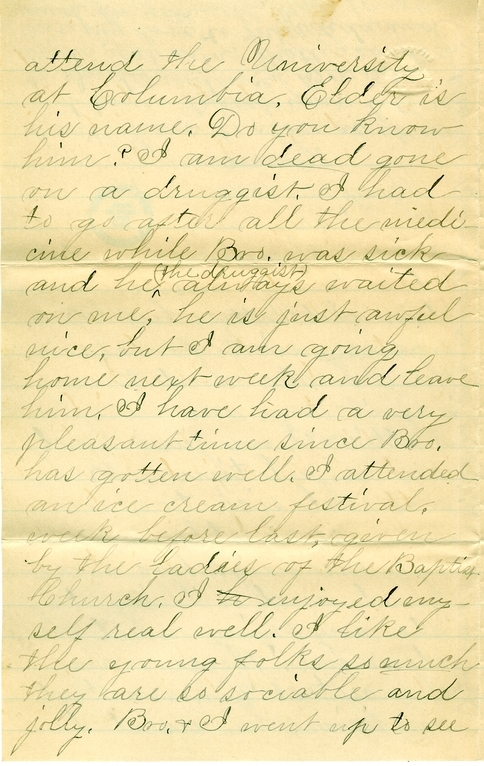 attend the University
at Columbia. Elder is
his name. Do you know
him? I am dead gone
on a druggist. I had
to go after all the medi-
cine while Bro. was sick
and he (the druggist) always waited
on me, he is just awful
nice, but I am going
home next week and leave
him. I have had a very
pleasant time since Bro.
has gotten well. I attended
an ice cream festival,
week before last, given
by the ladies of the Baptist
Church. I to enjoyed my-
self real well. I like
the young folks so much
they are so sociable and
jolly. Bro. & I went up to see